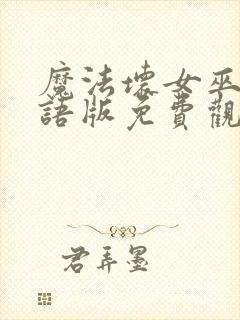 魔法壞女巫
語版免費觀
君弄墨